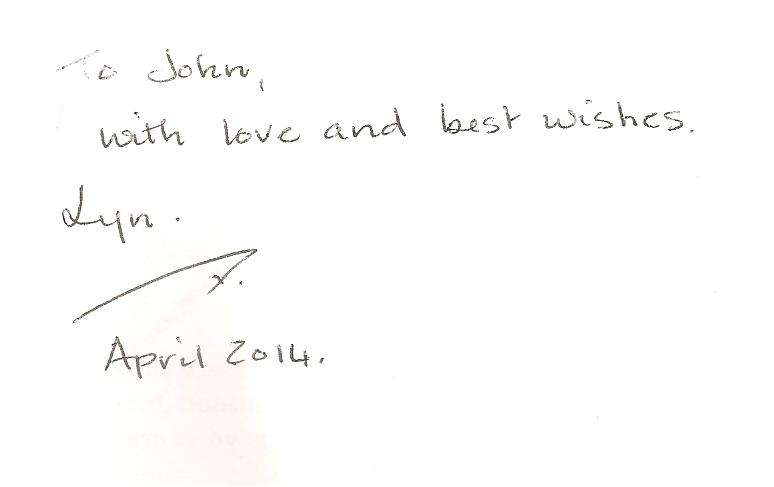 To John,
with love and best wishes.
Lyn.
x.
April 2014.